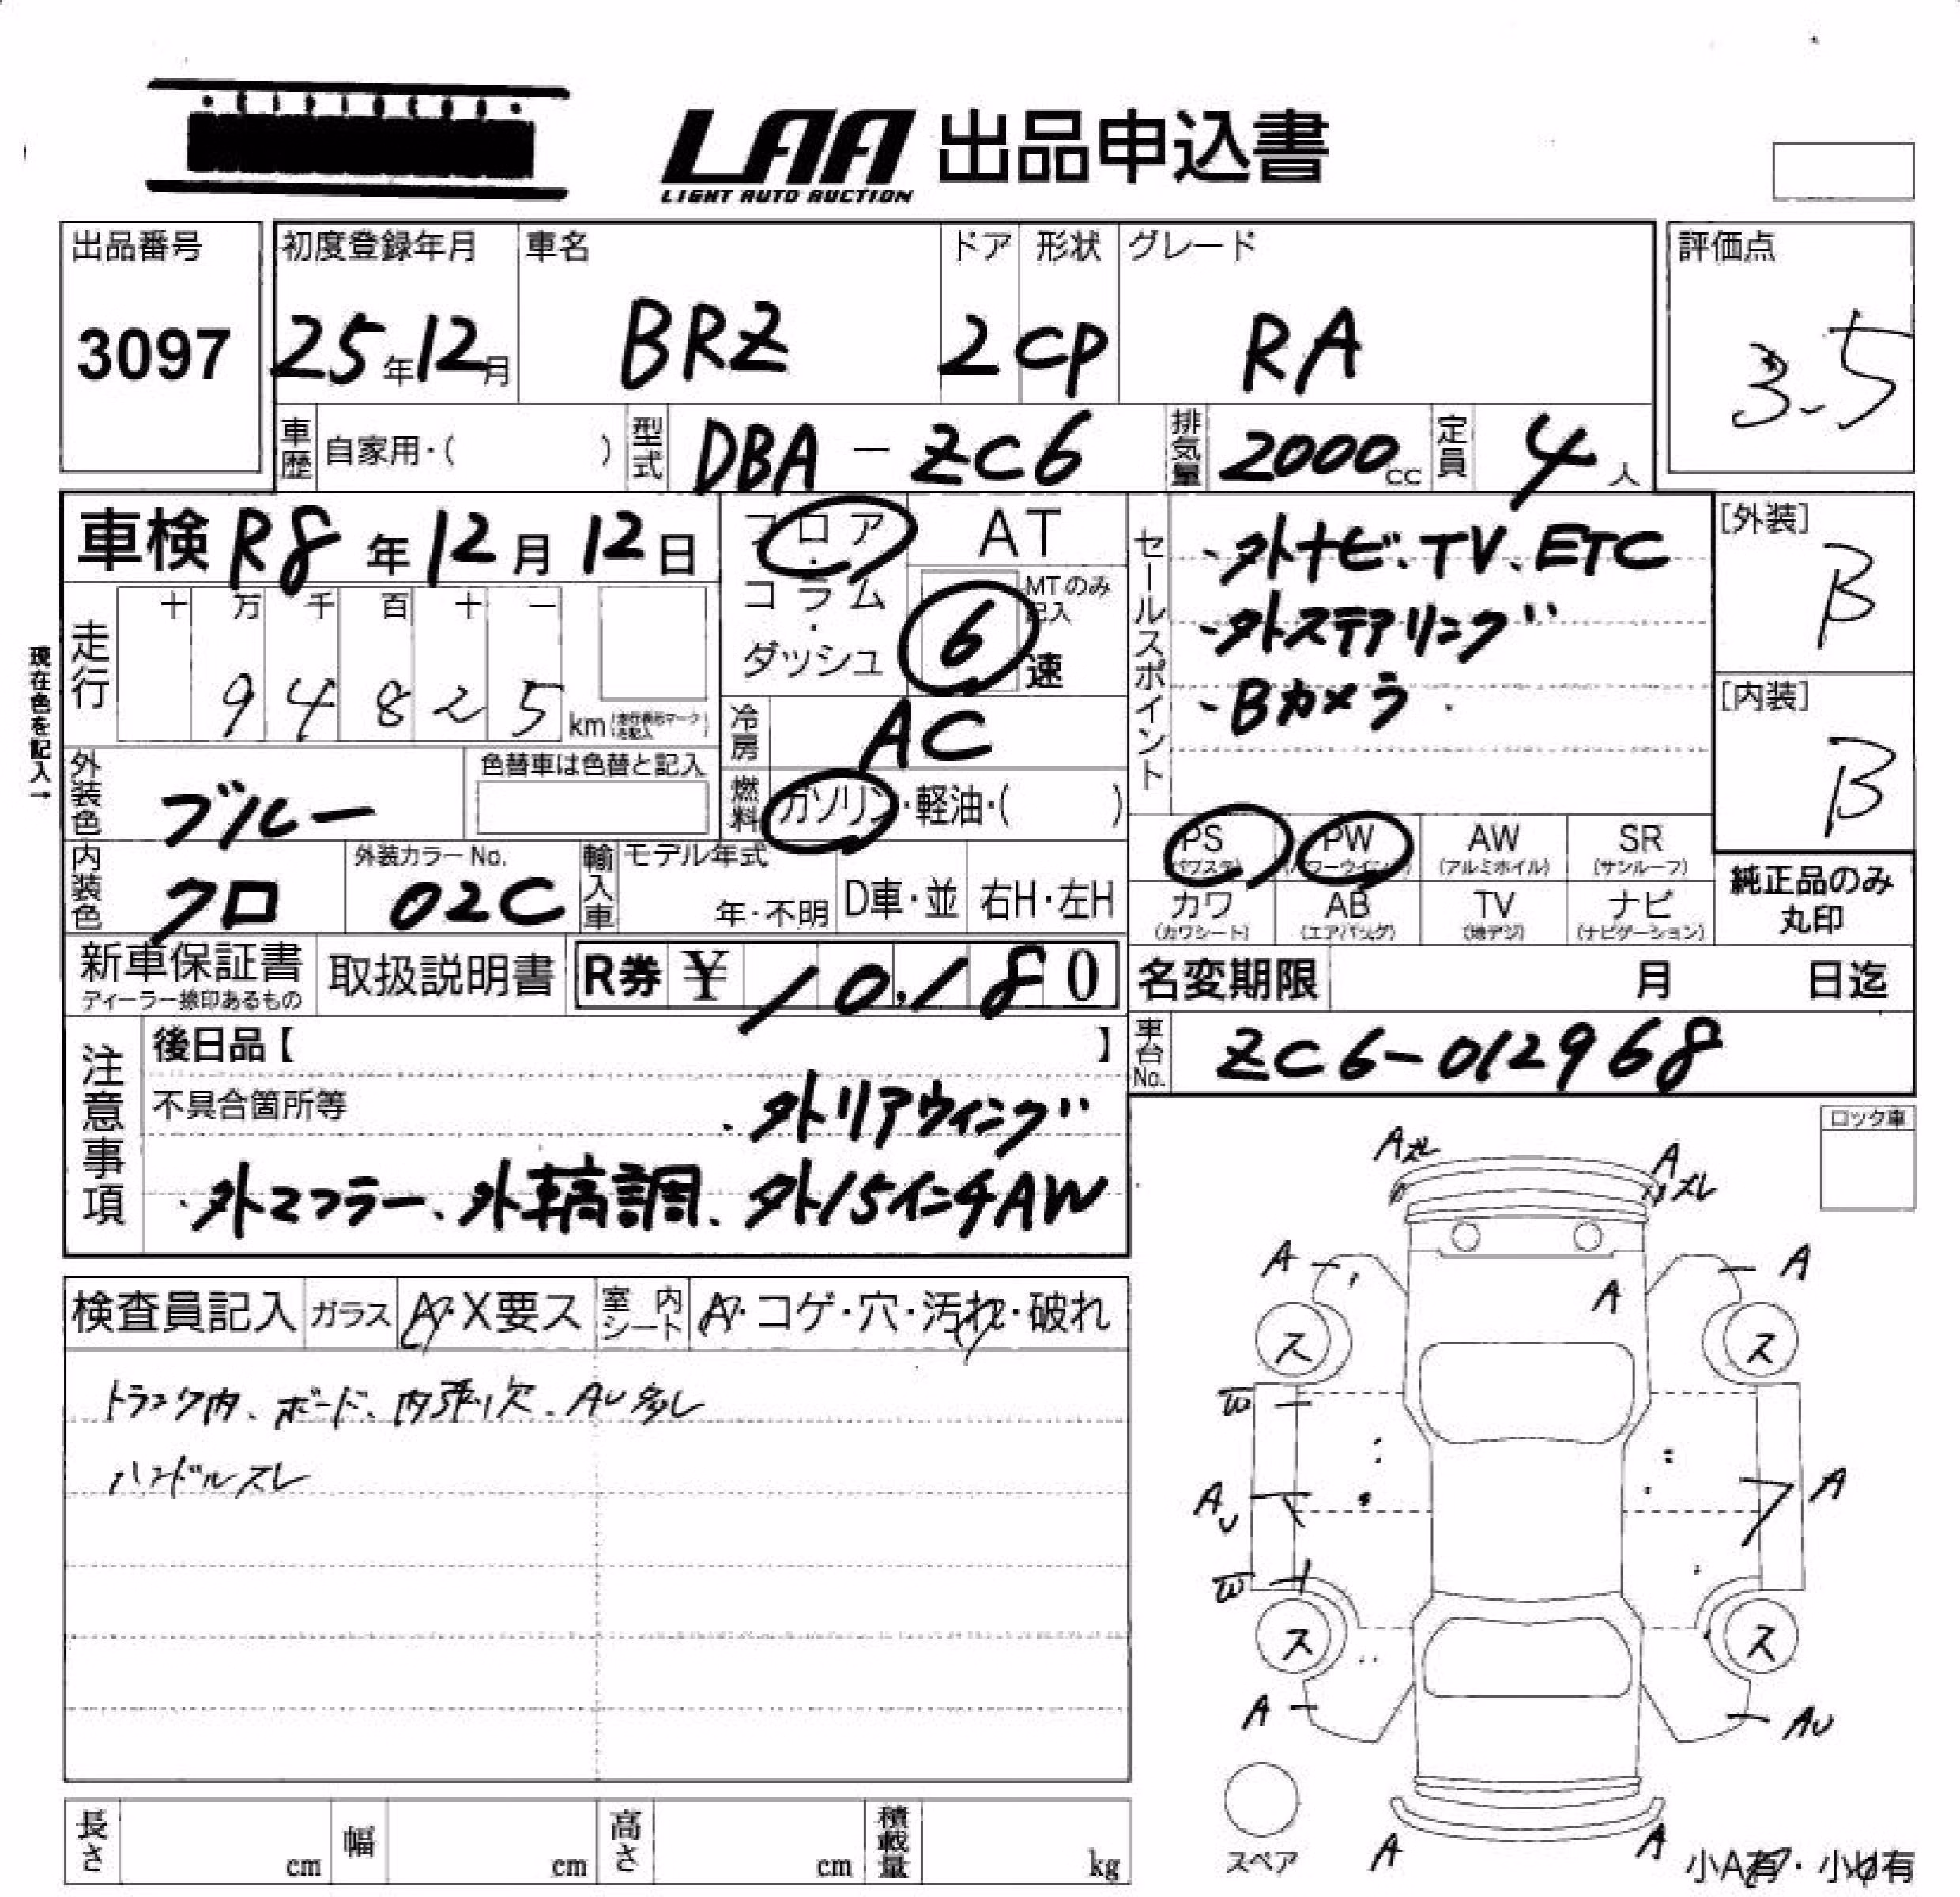 LAA 出品申込書
LIGHT AUTO AUCTION
出品番号
3097
初度登録年月
25年12月
車名
BRZ
ドア
2
形状
CP
グレード
RA
評価点
3.5
車歴 自家用・( )
型式 DBA-ZC6
排気量 2000cc
定員 4人
車検 R8年12月12日
フロア・コラム・ダッシュ
AT
MTのみ記入
6速
セールスポイント
・外ナビ、TV、ETC
・外ステアリング
・Bカメラ
[外装]
B
[内装]
B
現在色を記入→
走行
十 万 千 百 十 一
94825km
冷房 AC
燃料 ガソリン・軽油・( )
外装色 ブルー
色替車は色替と記入
内装色 クロ
外装カラーNo.
02C
輸入車 モデル年式
年・不明
D車・並
右H・左H
PS (パワステ)
PW (パワーウインド)
AW (アルミホイル)
SR (サンルーフ)
カワ (カワシート)
AB (エアバッグ)
TV (地デジ)
ナビ (ナビゲーション)
純正品のみ
丸印
新車保証書
ディーラー捺印あるもの
取扱説明書
R券 ¥10,180
名変期限 月 日迄
車台No. ZC6-012968
注意事項
後日品【 】
不具合箇所等
・外リアウィング
・外マフラー、外車高調、外15インチAW
ロック車
検査員記入
ガラス A・X要ス
室内シート A・コゲ・穴・汚れ・破れ
トランク内、ボード、内張り欠、AU多し
ハンドルスレ
Aスレ
A
スレ
A
A
A
ス
ス
W
AU
A
W
ス
ス
A
AU
A
A
スペア
小A有・小U有
長さ cm
幅 cm
高さ cm
積載量 kg